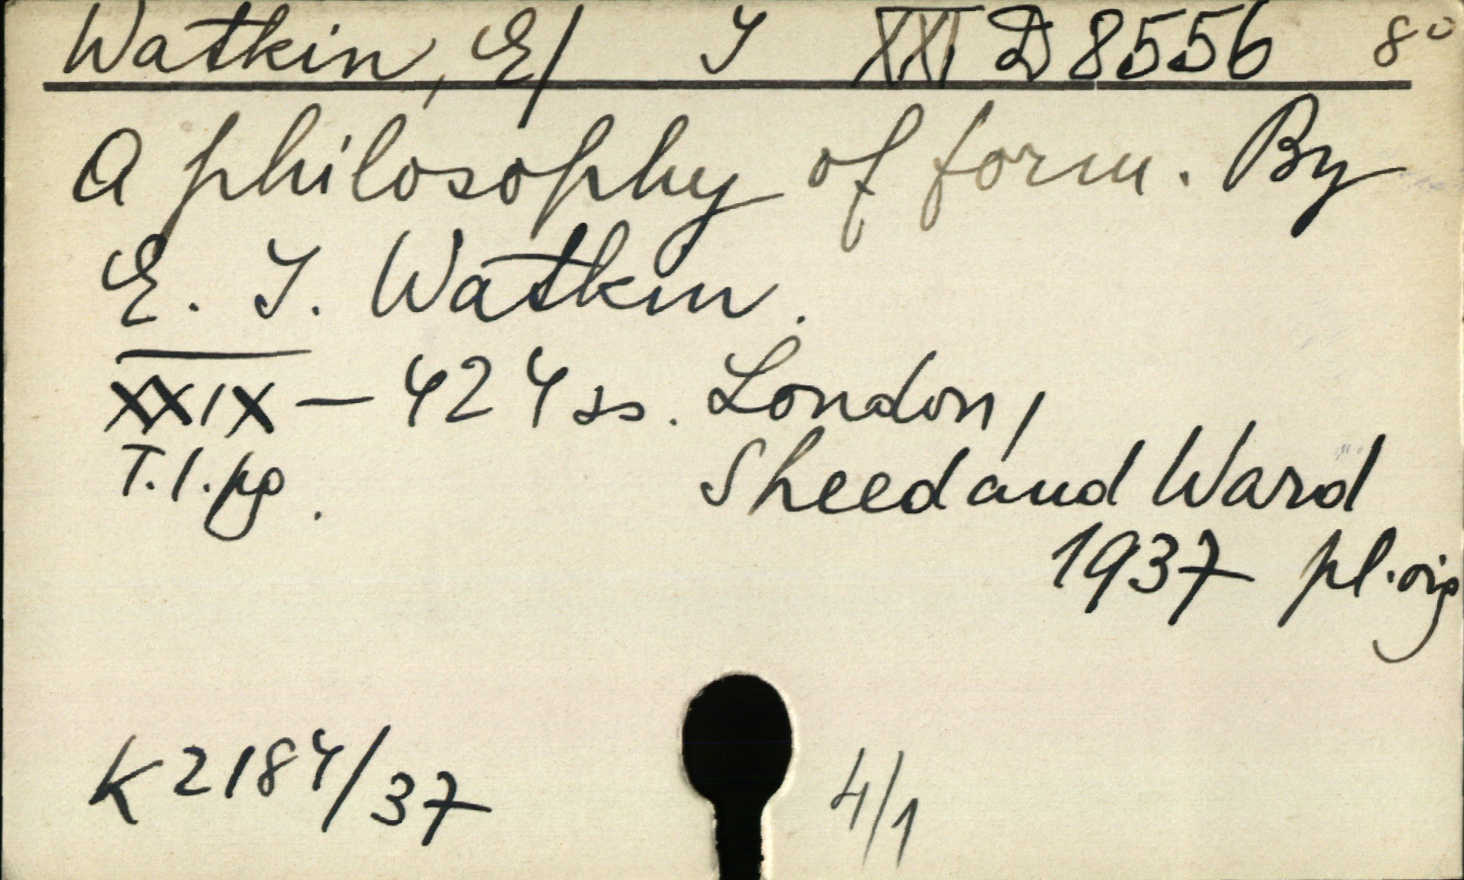 Watkin, E/ I XXI D 8556 8°
A philosophy of form. By
E. I. Watkin.
XXIX — 424 ss. London,
T.l.pg. Sheed and Ward
1937 pl. orig
K 2184/37 4/1